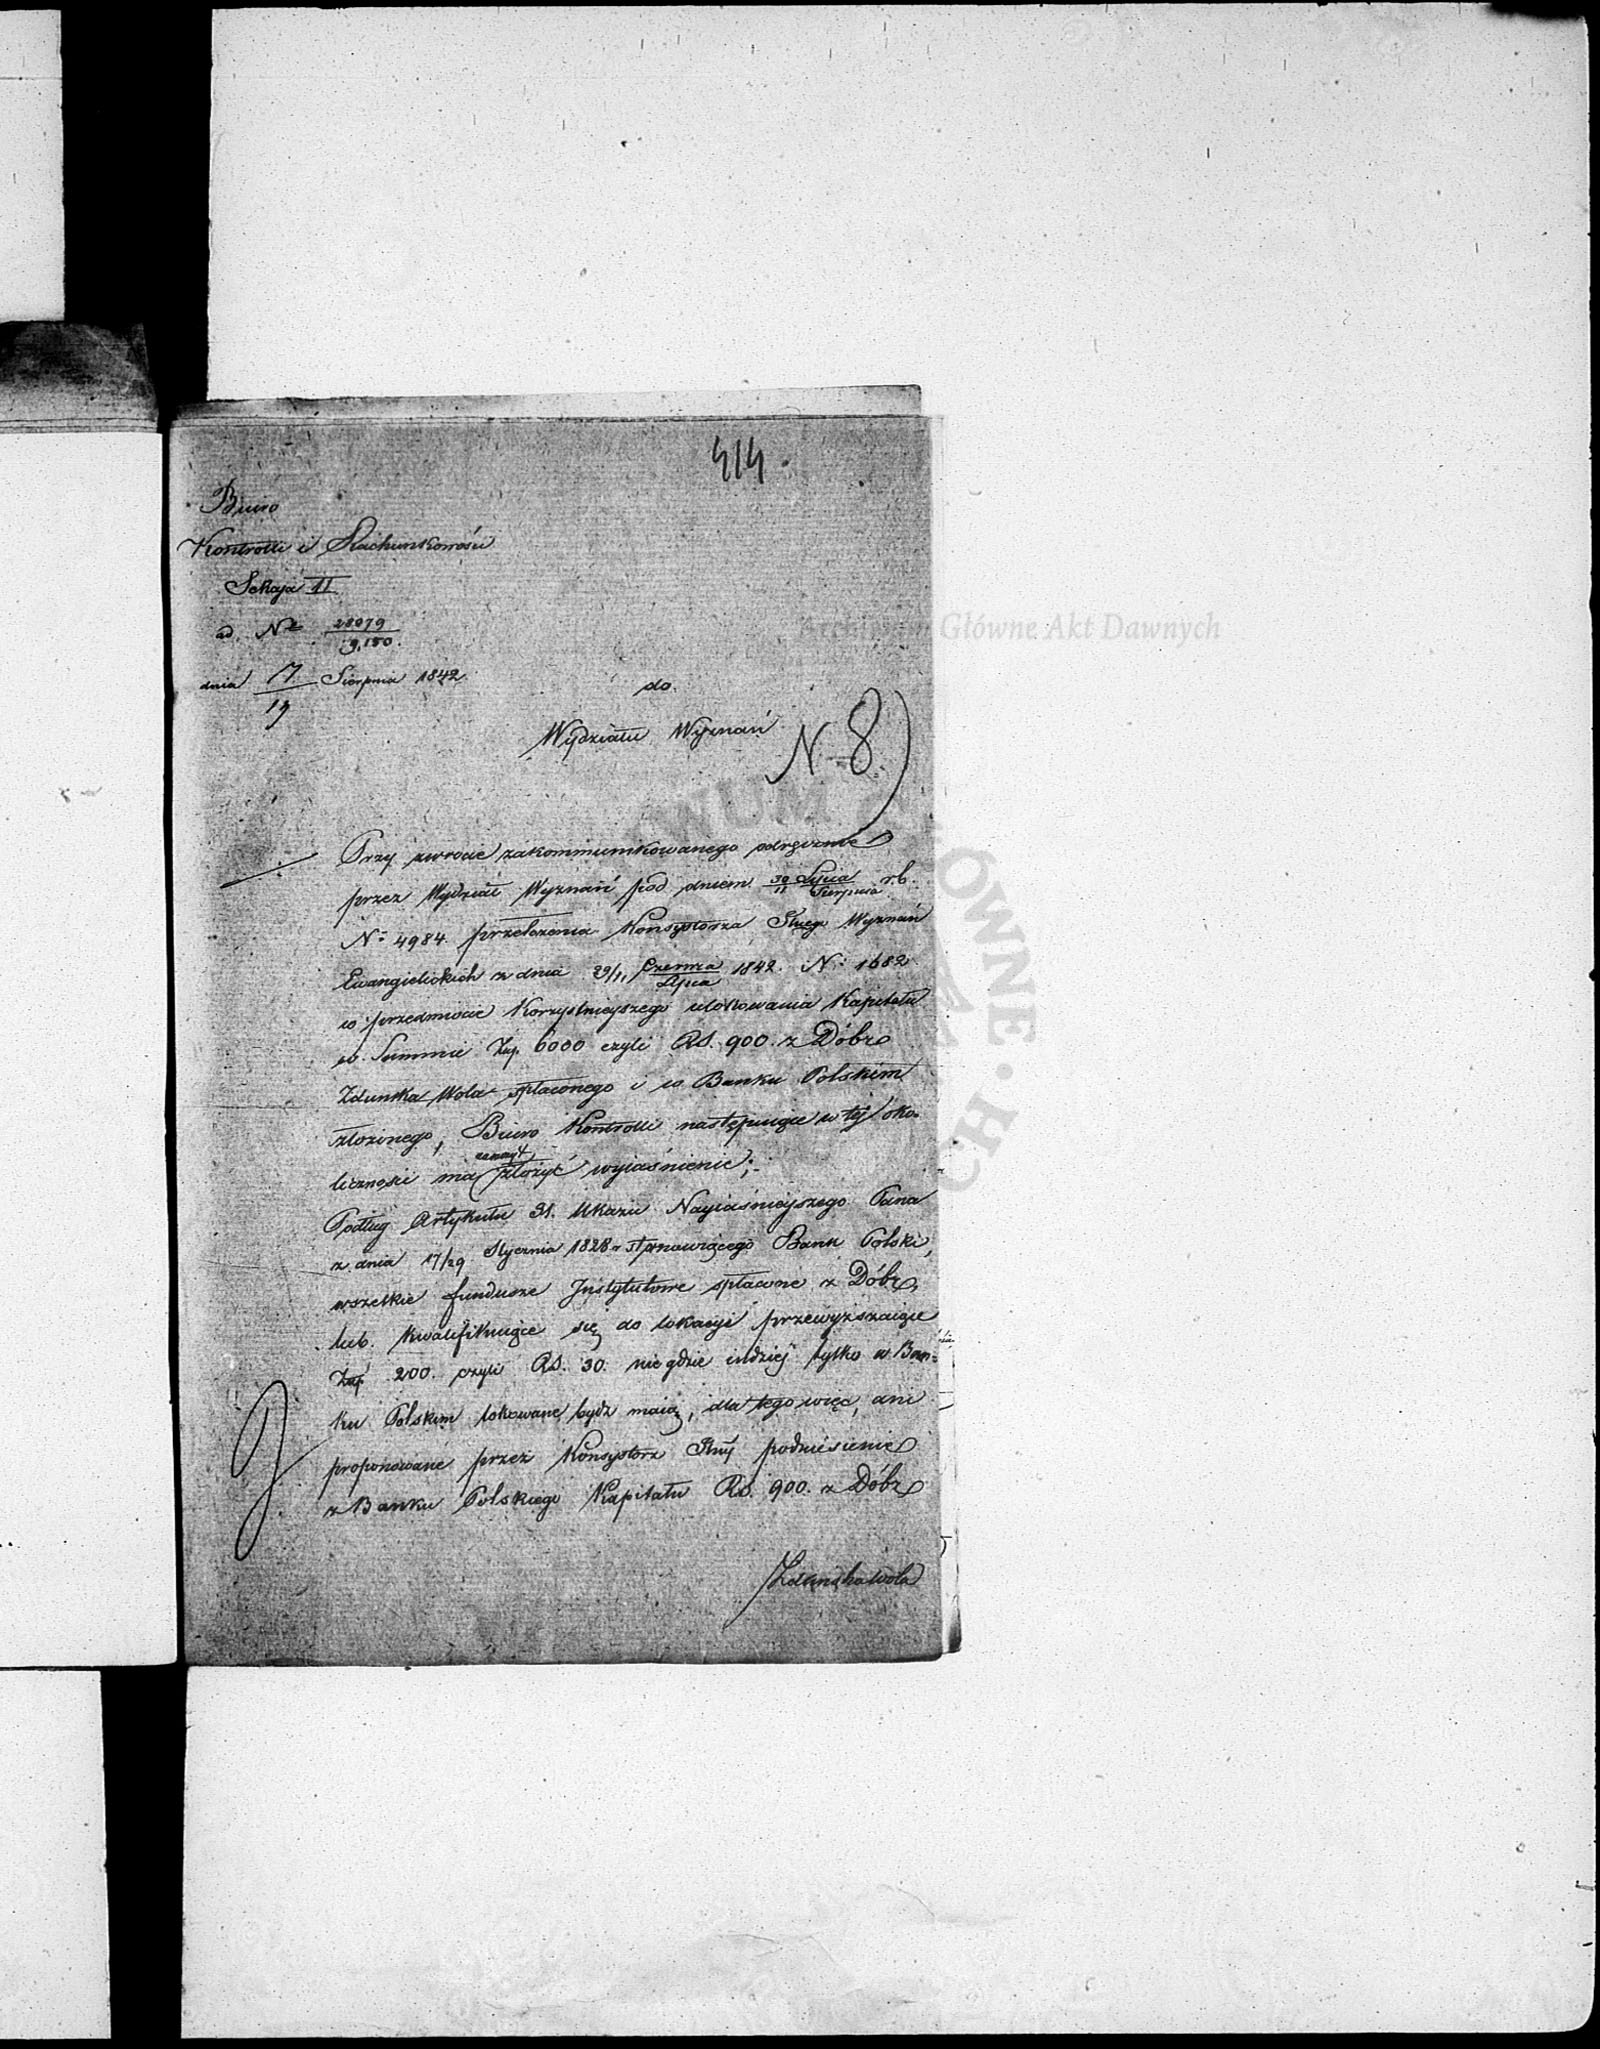 414.
Biuro
Kontrolli i Rachunkowości
Sekcja II
ad. Nº 28079/9,150.
dnia 7/19 Sierpnia 1842
do
Wydziału Wyznań
N. 8)
Przy zwrocie zakommunikowanego odręcznie
przez Wydział Wyznań pod dniem 30 Lipca/11 Sierpnia r.b.
Nº 4984 przełożenia Konsystorza Wyznań
Ewangielickich z dnia 29/11 Czerwca/Lipca 1842. N: 1682
w przedmiocie korzystnieyszego ulokowania Kapitału
w Summie Złp. 6000 czyli RS. 900. z Dóbr
Zduńska Wola spłaconego i w Banku Polskim
złożonego, Biuro Kontrolli następuiące w tej oko-
liczności ma złożyć wyiaśnienie;
Podług Artykułu 31. Ukazu Nayiaśnieyszego Pana
z dnia 17/29 Stycznia 1828 r. stanowiącego Bank Polski,
wszelkie fundusze Instytutowe spłacone z Dóbr,
lub kwalifikuiące się do lokacyi przewyższaiące
Złp. 200. czyli RS. 30. nie gdzie indziej tylko w Ban-
ku Polskim lokowane bydź maią, dla tego więc, ani
proponowane przez Konsystorz podniesienie
z Banku Polskiego Kapitału Rs. 900. z Dóbr
Zduńska Wola
Archiwum Główne Akt Dawnych